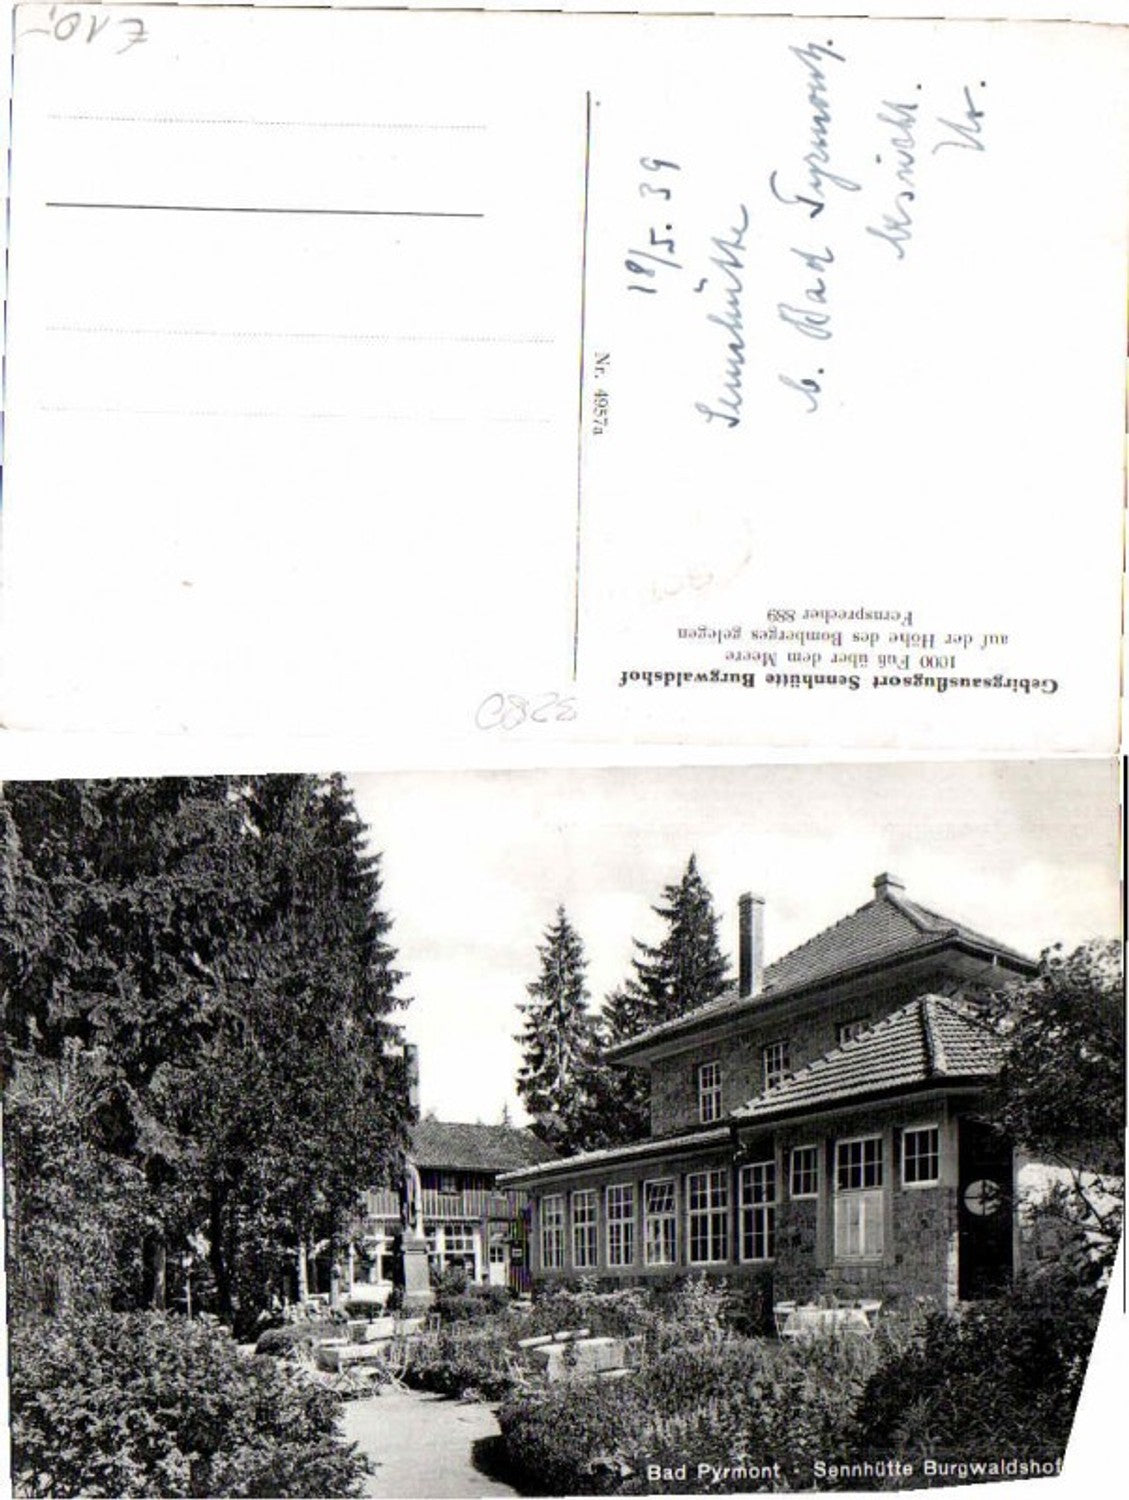 Gebirgsausflugsort Sennhütte Burgwaldshof
1000 Fuß über dem Meere
auf der Höhe des Bomberges gelegen
Fernsprecher 889
Nr. 4957a
18/5. 39
Sennhütte
b. Bad Pyrmont.
besucht.
€ 10,-
3280
Bad Pyrmont · Sennhütte Burgwaldshof